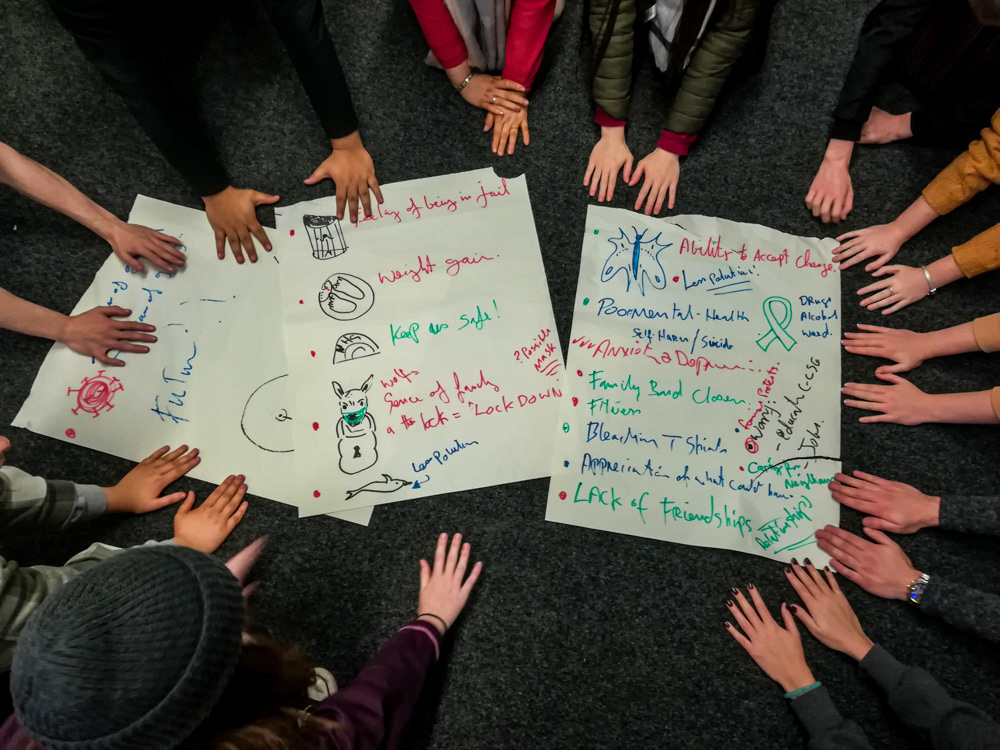 FuTure!
Feeling of being in Jail
weight gain.
NHS
Keep us safe!
? Possible
mask
wolf
Sence of family
a the lock = "LOCK DOWN
Less Polution
Ability to Accept Change.
Less Polution
Poor Mental-Health
Self-Harm/Suicide
DRugs
Alcohol
weed.
Anxiety & Depression
Family Bond Closer.
Fitness
Worry:
- education
- Jobs.
Bleaching T Shirts
Caring for
Neighbours
Appreciation of what could have.
LAck of Friendships
Relationship(s)